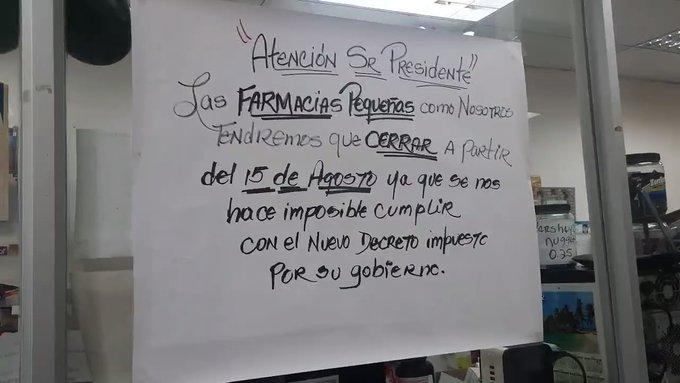 "Atención Sr Presidente"
Las FARMACIAS Pequeñas como Nosotros
Tendremos que CERRAR a partir
del 15 de Agosto ya que se nos
hace imposible cumplir
con el Nuevo Decreto impuesto
Por su gobierno.
nugg
0.25